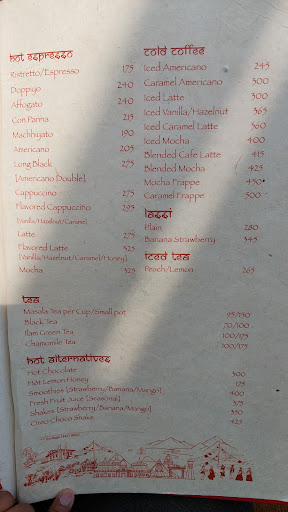 Hot Espresso
Ristretto/Espresso 175
Doppiyo 240
Affogato 240
Con Panna 215
Machhiyato 190
Americano 205
Long Black 275
[Americano Double]
Cappuccino 275
Flavored Cappuccino 295
[Vanilla/Hazelnut/Caramel]
Latte 275
Flavored Latte 325
[Vanilla/Hazelnut/Caramel/Honey]
Mocha 325
Tea
Masala Tea per Cup/Small pot 95/150
Black Tea 70/100
Ilam Green Tea 100/175
Chamomile Tea 100/175
Hot Alternatives
Hot Chocolate 300
Hot Lemon Honey 175
Smoothies [Strawberry/Banana/Mango] 400
Fresh Fruit Juice [Seasonal] 375
Shakes [Strawberry/Banana/Mango] 350
Oreo Choco Shake 425
Cold Coffee
Iced Americano 245
Caramel Americano 300
Iced Latte 300
Iced Vanilla/Hazelnut 365
Iced Caramel Latte 360
Iced Mocha 400
Blended Cafe Latte 415
Blended Mocha 425
Mocha Frappe 450
Caramel Frappe 500
Lassi
Plain 280
Banana Strawberry 345
Iced Tea
Peach/Lemon 265